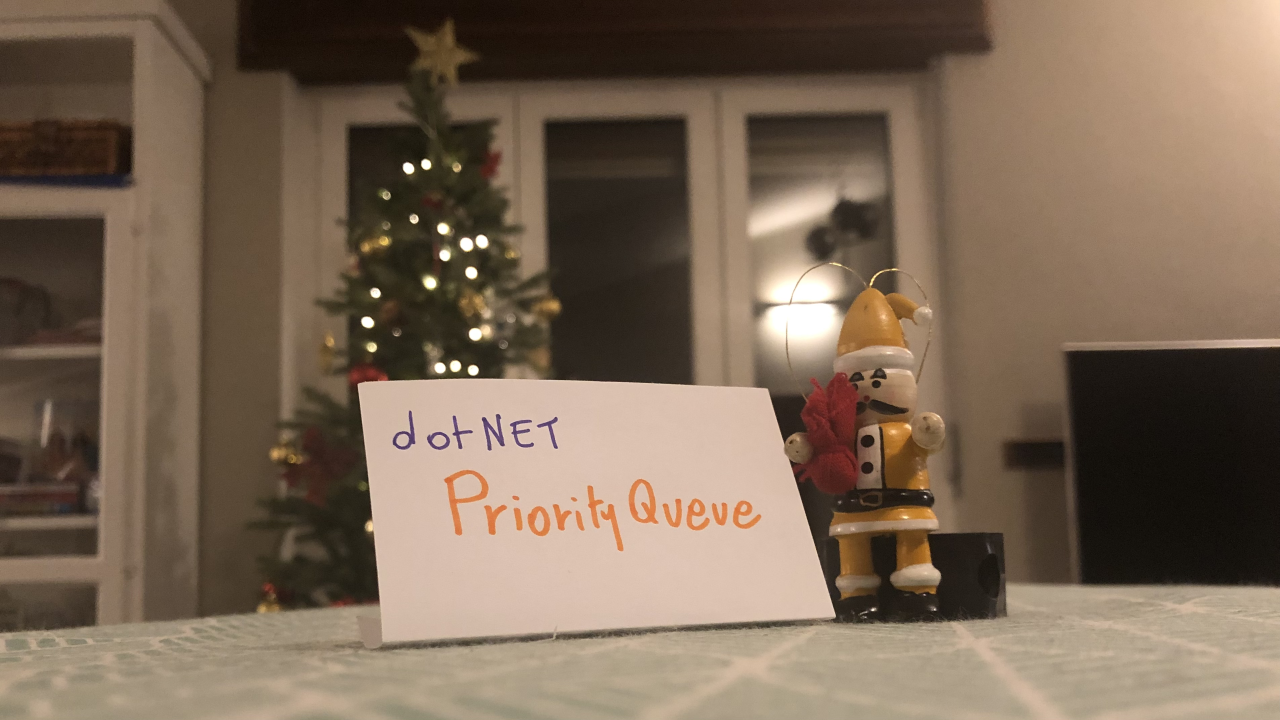 dotNET
PriorityQueue